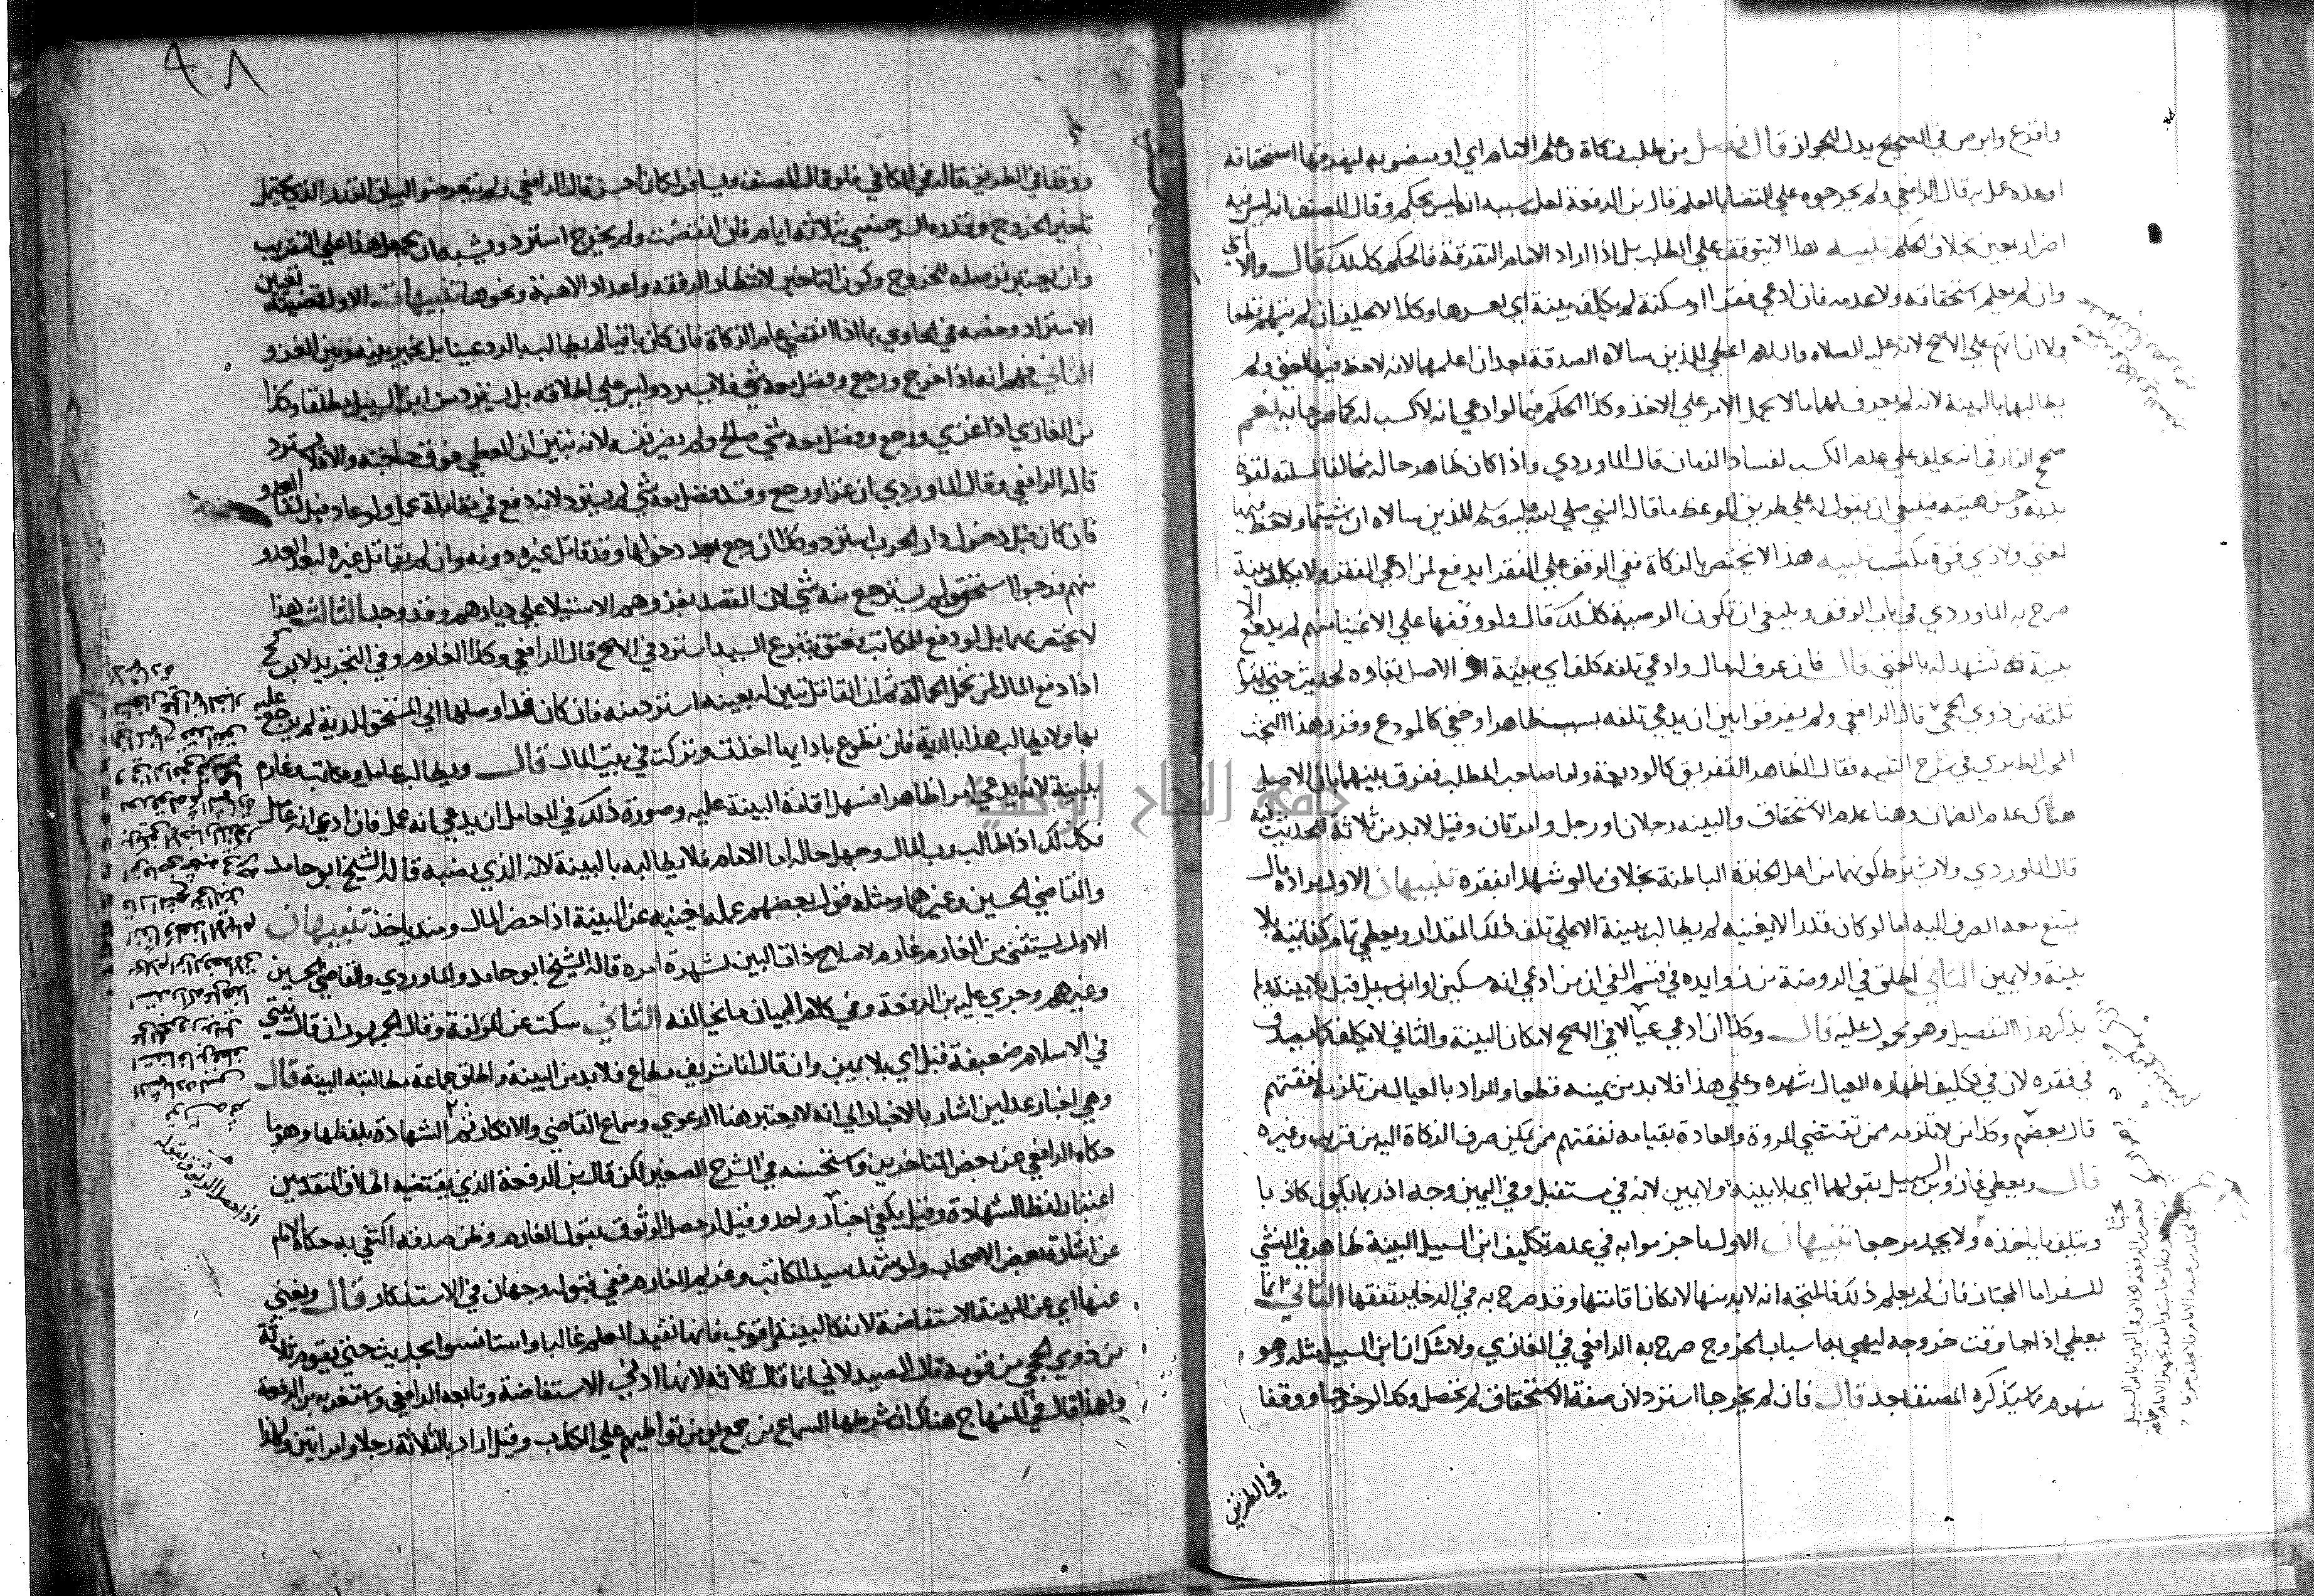 واقرع وابرص في الصحيح يدل للجواز قال فصل من طلب زكاة وعلم الامام اي او منصوبه ليفرقها استحقاقه
او عدمه عمل به قال الرافعي ولم يخرجوه علي القضا بالعلم قال بن الرفعة لعل سببه انه ليس بحكم وقال المصنف انه ليس فيه
اضرار بمعين بخلاف الحكم تنبيه هذا لا يتوقف علي الطلب بل اذا اراد الامام التفرقة فالحكم كذلك قال والا اي
وان لم يعلم استحقاقه ولا عدمه فان ادعي فقرا او مسكنة لم يكلف بينة اي لعسرها وكذا لا يحلف ان لم يتهم قطعا
ولا ان اتهم علي الاصح لانه عليه الصلاه والسلام اعطي اللذين سالاه الصدقة بعد ان اعلمهما لانه لا حظ فيها لغني ولم
يطالبهما باليمينة لانه لم يعرف لهما مالا يحمل الامر علي الاخذ وكذا الحكم فيما لو ادعي انه لا كسب له كما صرحا به نعم
صحح الفارقي انه يحلف علي عدم الكسب لفساد الزمان قال الماوردي واذا كان ظاهر حاله مخالفا لمسلته لقوة
بدنه وحسن هيئته فينبغي ان يقول له علي طريق الوعظ ما قاله النبي صلي الله عليه وسلم للذين سالاه ان شيتما ولا حظ فيها
لغني ولا ذي قوة مكتسب تنبيه هذا لا يختص بالزكاة ففي الوقف علي الفقرا يدفع لمن ادعي الفقر ولا يكلف بينة
صرح به الماوردي في باب الوقف وينبغي ان تكون الوصية كذلك قال ولو وقفها علي الاغنيا منهم لم يدفع الا
ببينة تشهد له بالغني قال فان عرف له مال وادعي تلفه كلف اي ببينة اذ الاصل بقاوه لحديث حتي يقوم
ثلثة من ذوي الحجي قال الرافعي ولم يفرقوا بين ان يدعي تلفه بسبب ظاهر او خفي كالمودع وقرر هذا البحث
المحب الطبري في شرح التنبيه فقال الظاهر التفريق كالوديعة واما صاحب المطلب ففرق بينهما بان الاصل
هناك عدم الضمان وهنا عدم الاستحقاق والبينه رجلان او رجل وامرتان وقيل لابد من ثلاثة للحديث
قال الماوردي ولا يشترط كونهما من اهل الخبرة الباطنة بخلاف ما لو شهدا بفقره تنبيهان الاول مراده مال
يمتنع معه الصرف اليه اما لو كان قدرا لا يغنيه لم يطالب ببينة الا علي تلف ذلك المقدار ويعطي تمام كفايته بلا
بينة ولا يمين الثاني اطلق في الروضة من زوايده في قسم الفي ان من ادعي انه مسكين او ابن سبيل قبل بلا بينة ولم
يذكر هذا التفصيل وهو محمول عليه قال وكذا ان ادعي عيالا في الاصح لامكان البينة والثاني لا يكلف كما يصدق
في فقره لان في تكليف اظهاره العيال شهره وعلي هذا فلابد من يمينه قطعا والمراد بالعيال من تلزمه نفقتهم
قال بعضهم وكذا من لا تلزمه ممن تقتضي المروة والعادة بقيامه بنفقتهم ممن يمكن صرف الزكاة اليه من قريب وغيره
قال ويعطي غاز وابن السبيل بقولهما اي بلا بينة ولا يمين لانه في مستقبل وفي اليمين وجه اذ ربما يكون كاذبا
ويتلف ما ياخذه ولا يجد مرجعا تنبيهان الاول ما جزموا به في عدم تكليف ابن السبيل البينة ظاهر في المنشي
للسفر اما المجتاز فان لم يعلم ذلك فالمتجه انه لابد منها لامكان اقامتها وقد صرح به في الدخاير تفقها الثاني انما
يعطي اذا جا وقت خروجه ليهي به اسباب الخروج صرح به الرافعي في الغازي ولا شك ان ابن السبيل مثله وهو
مفهوم ما يذكره المصنف بعد قال فان لم يخرجا استرد لان صفة الاستحقاق لم تحصل وكذا لو خرجا ووقفا
في الطريق
ووقفا في الطريق قاله في الكافي فلو قال المصنف ويسافر لكان احسن قال الرافعي ولم يتعرضوا لبيان القدر الذي يحتمل
تاخير الخروج وقدره السرخسي بثلاثة ايام فان انقضت ولم يخرج استرد ويشبه ان يجعل هذا علي التقريب
وان يعتبر ترصده للخروج وكون التاخير لانتظار الرفقه واعداد الاهبة ونحوها تنبيهات الاول قضيته تعين
الاسترداد وخصه في الحاوي بما اذا انقضي عام الزكاة فان كان باقيا لم يطالب بالرد عينا بل يخير بينه وبين الغزو
الثاني فهم انه اذا خرج ورجع وفضل معه شي فلا يسترد وليس علي اطلاقه بل يسترد من ابن السبيل مطلقا وكذا
من الغازي اذا غزي ورجع وفضل معه شي صالح ولم يضر نفسه لانه تبين ان المعطي فوق حاجته والا فلا يسترد
قاله الرافعي وقال الماوردي ان غزا ورجع وقد فضل معه شي لم يسترد لانه دفع في مقابلة عمل ولو عاد قبل لقا العدو
فان كان قبل دخول دار الحرب استرد وكذا ان رجع بعد دخولها وقد قاتل غيره دونه وان لم يقاتل غيره لبعد العدو
منهم فرجعوا استحق ولم يسترجع منه شي لان القصد بغزوهم الاستيلا علي ديارهم وقد وجد الثالث هذا
لا يختص بهما بل لو دفع للمكاتب فعتق بتبرع السيد استرد في الاصح قال الرافعي وكذا الغارم وفي التجريد لابن كج
اذا دفع المال لمن تحمل الحمالة ثم ان القاتل تبين له بعينه استرد منه فان كان قد اوصلها الي المستحق للدية لم يرجع عليه
بها ولا يطالب هذا بالدية فان تطوع باداها اخذت وتركت في بيت المال قال ويطالب عامل ومكاتب وغارم
ببينة لانه يدعي امرا ظاهرا فسهل اقامة البينة عليه وصورة ذلك في العامل ان يدعي انه عمل فان ادعي انه عامل
فكذلك اذا طالب رب المال وجهل حاله اما الامام فلا يطالبه بالبينة لانه الذي نصبه قاله الشيخ ابو حامد
والقاضي الحسين وغيرهما ومثله قول بعضهم عمله يغنيه عن البينة اذا احضر المال ومنه ياخذ تنبيهان
الاول يستثني من الغارم غارم لاصلاح ذات البين لشهرة امره قاله الشيخ ابو حامد والماوردي والقاضي الحسين
وغيرهم وجري عليه بن الرفعة وفي كلام البيان ما يخالفه الثاني سكت عن المولفة وقال الجمهور ان قال نيتي
في الاسلام ضعيفة قبل اي بلا يمين وان قال انا شريف مطاع فلابد من البينة واطلق جماعة مطالبته البينة قال
وهي اخبار عدلين اشار بالاخبار الي انه لا يعتبر هنا الدعوي وسماع القاضي والانكار ثم الشهادة بلفظها وهو ما
حكاه الرافعي عن بعض المتاخرين واستحسنه في الشرح الصغير لكن قال بن الرفعة الذي يقتضيه اطلاق المتقدمين
اعتبار لفظ الشهادة وقيل يكفي اخبار واحد وقيل لو حصل الوثوق بقول الغارم وظن صدقه اكتفي به حكاه الامام
عن اشارة بعض الاصحاب ولو شهد سيد المكاتب وغريم الغارم ففي قبوله وجهان في الاستذكار قال ويغني
عنها اي عن البينة الاستفاضة لانها كالبينة او اقوي فانها تفيد العلم غالبا واستانسوا بحديث حتي يقوم ثلاثة
من ذوي الحجي من قومه قال العبيد لاني انما قال ثلاثه لانها ادني الاستفاضة وتابعه الرافعي واستغربه بن الرفعة
ولهذا قال في المنهاج هناك ان شرطها السماع من جمع يومن تواطيهم علي الكذب وقيل اراد بالثلاثة رجلا وامراتين ولهذا